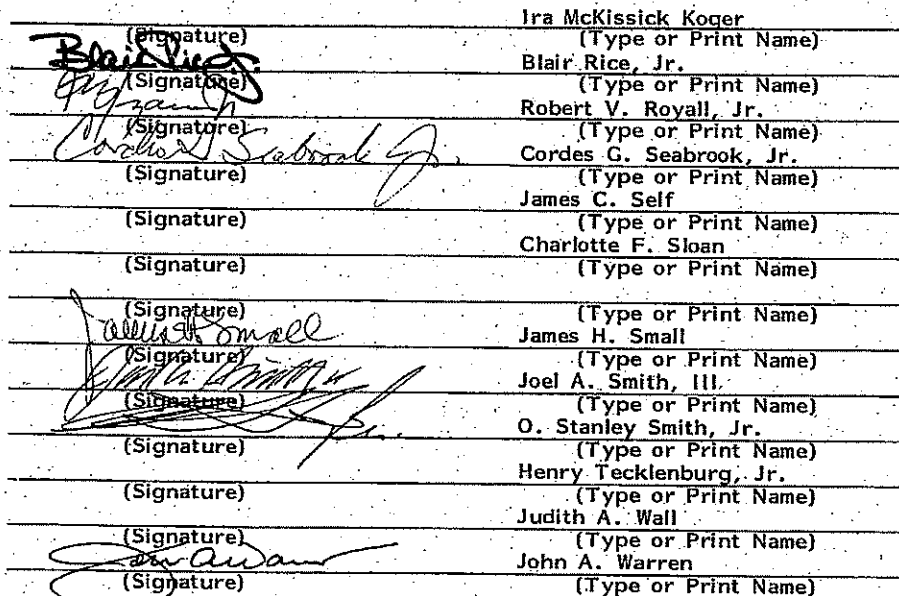 Ira McKissick Koger
(Signature) (Type or Print Name)
Blair Rice, Jr. Blair Rice, Jr.
(Signature) (Type or Print Name)
Robert V. Royall, Jr.
(Signature) (Type or Print Name)
Cordes G. Seabrook Jr. Cordes G. Seabrook, Jr.
(Signature) (Type or Print Name)
James C. Self
(Signature) (Type or Print Name)
Charlotte F. Sloan
(Signature) (Type or Print Name)
(Signature) (Type or Print Name)
James H. Small James H. Small
(Signature) (Type or Print Name)
Joel A. Smith, III
(Signature) (Type or Print Name)
O. Stanley Smith, Jr.
(Signature) (Type or Print Name)
Henry Tecklenburg, Jr.
(Signature) (Type or Print Name)
Judith A. Wall
(Signature) (Type or Print Name)
John A. Warren
(Signature) (Type or Print Name)